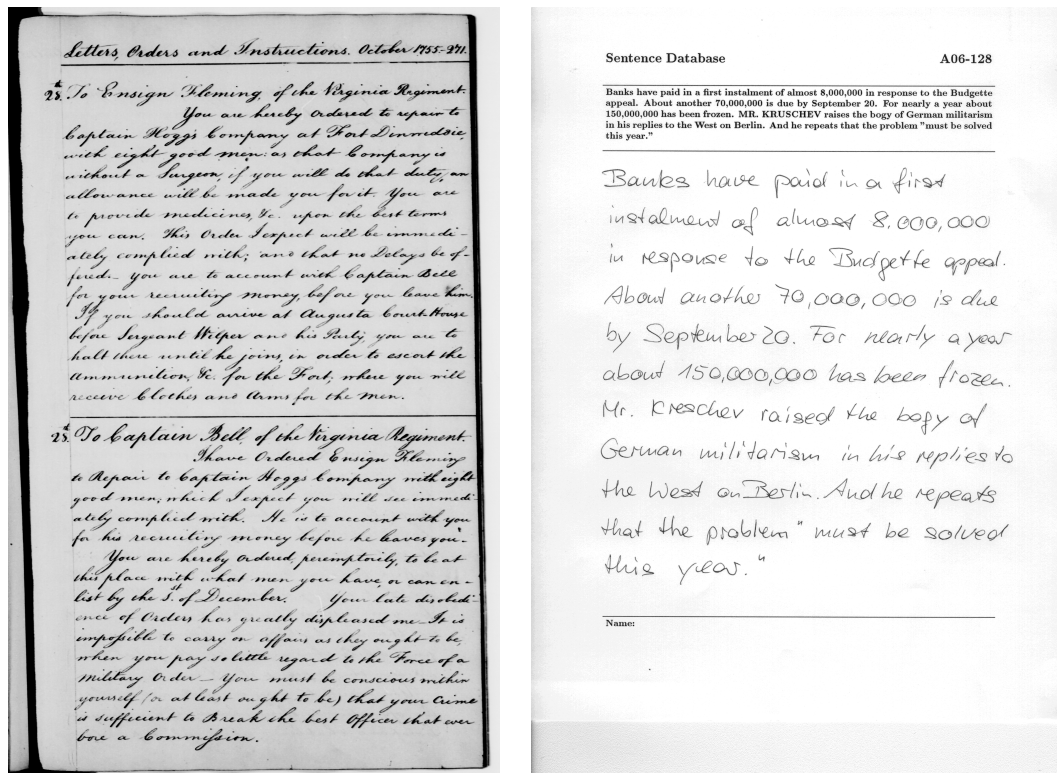 Letters, Orders and Instructions. October 1755. 271.
28th. To Ensign Fleming, of the Virginia Regiment.
You are hereby ordered to repair to
Captain Hoggs Company at Fort Dinwiddie,
with eight good men: as that Company is
without a Surgeon, if you will do that duty, an
allowance will be made you for it. You are
to provide medicines, &c. upon the best terms
you can. This Order I expect will be immedi-
ately complied with; and that no Delays be of-
fered. You are to account with Captain Bell
for your recruiting money, before you leave him.
If you should arrive at Augusta Court House
before Sergeant Wilper and his Party you are to
halt there until he joins, in order to escort the
Ammunition, &c. for the Fort; where you will
receive Clothes and Arms for the men.
28th. To Captain Bell, of the Virginia Regiment.
I have Ordered Ensign Fleming
to Repair to Captain Hoggs Company with eight
good men; which I expect you will see immedi-
ately complied with. He is to account with you
for his recruiting money before he leaves you.
You are hereby ordered, peremptorily, to be at
this place with what men you have, or can en-
list by the 1st. of December. Your late disobedi-
ence of Orders has greatly displeased me. It is
impossible to carry on affairs as they ought to be,
when you pay so little regard to the Force of a
Military Order — You must be conscious within
yourself (or at least ought to be) that your Crime
is sufficient to Break the best Officer that ever
bore a Commission.
Sentence Database A06-128
Banks have paid in a first instalment of almost 8,000,000 in response to the Budgette
appeal. About another 70,000,000 is due by September 20. For nearly a year about
150,000,000 has been frozen. MR. KRUSCHEV raises the bogy of German militarism
in his replies to the West on Berlin. And he repeats that the problem "must be solved
this year."
Banks have paid in a first
instalment of almost 8.000,000
in response to the Budgette appeal.
About another 70,000,000 is due
by September 20. For nearly a year
about 150,000,000 has been frozen.
Mr. Kreschev raised the bogy of
German militarism in his replies to
the West on Berlin. And he repeats
that the problem "must be solved
this year."
Name: